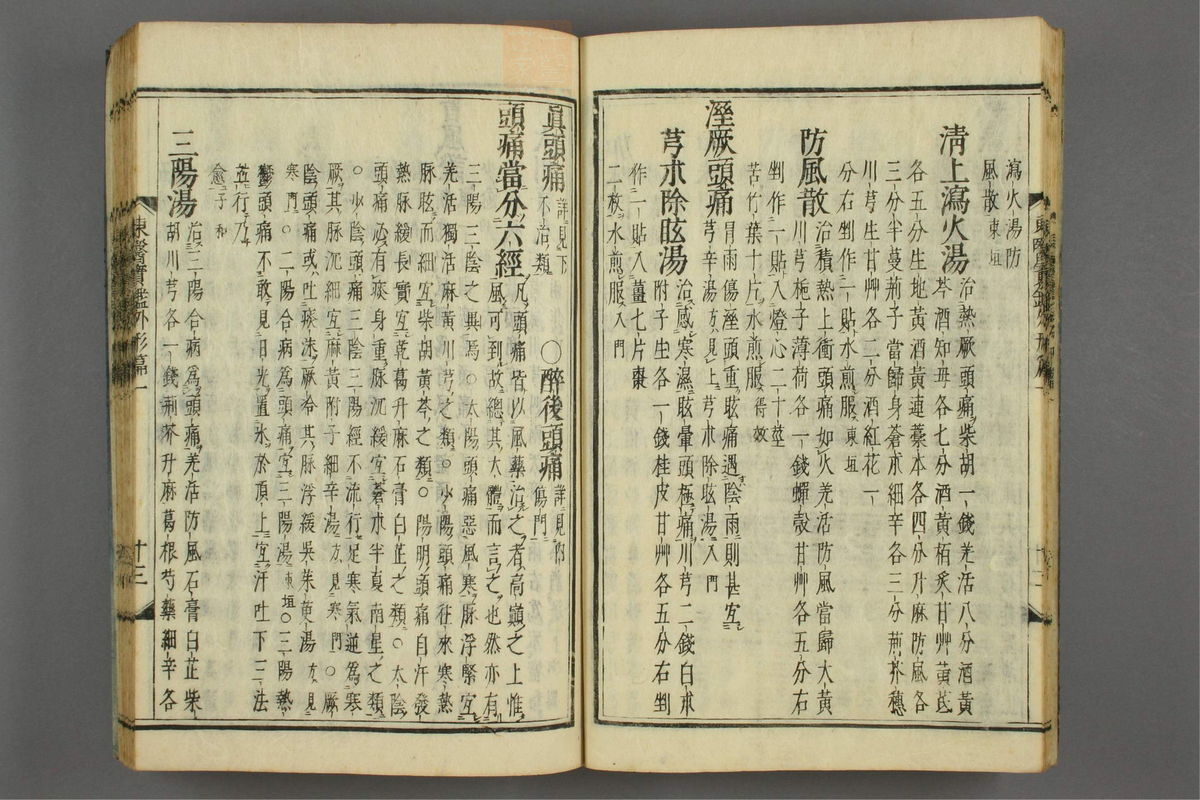 瀉火湯防
風散東垣
清上瀉火湯
治熱厥頭痛柴胡一錢羌活八分酒黃
芩酒知母各七分酒黃栢炙甘艸黃芪
各五分生地黃酒黃連藁本各四分升麻防風各
三分半蔓荊子當歸身蒼朮細辛各三分荊芥穗
川芎生甘艸各二分酒紅花一
分右剉作一貼水煎服東垣
防風散
治積熱上衝頭痛如火羌活防風當歸大黃
川芎梔子薄荷各一錢蟬殼甘艸各五分右
剉作一貼入燈心二十莖
苦竹葉十片水煎服得效
溼厥頭痛
冒雨傷溼頭重眩痛遇陰雨則甚宜
芎辛湯方見上芎朮除眩湯入門
芎朮除眩湯
治感寒濕眩暈頭極痛川芎二錢白朮
附子生各一錢桂皮甘艸各五分右剉
作一貼入薑七片棗
二枚水煎服入門
眞頭痛
詳見下
不治類
〇醉後頭痛
詳見內
傷門
頭痛當分六經
凡頭痛皆以風藥治之者高巔之上惟
風可到故總其大體而言之也然亦有
三陽三陰之異焉〇太陽頭痛惡風寒脉浮緊宜
羌活獨活麻黃川芎之類〇少陽頭痛往來寒熱
脉眩而細宜柴胡黃芩之類〇陽明頭痛自汗發
熱脉緩長實宜乾葛升麻石膏白芷之類〇太陰
頭痛必有痰身重脉沉緩宜蒼朮半夏南星之類
〇少陰頭痛三陰三陽經不流行足寒氣逆爲寒
厥其脉沉細宜麻黃附子細辛湯方見寒門〇厥
陰頭痛或吐痰沫厥冷其脉浮緩吳茱萸湯方見
寒門〇二陽合病爲頭痛宜三陽湯東垣〇三陽熱
鬱頭痛不敢見日光置氷於頂上宜汗吐下三法
並行乃
愈子和
三陽湯
治三陽合病爲頭痛羌活防風石膏白芷柴
胡川芎各一錢荊芥升麻葛根芍藥細辛各
東醫寶鑑外形篇一
十三